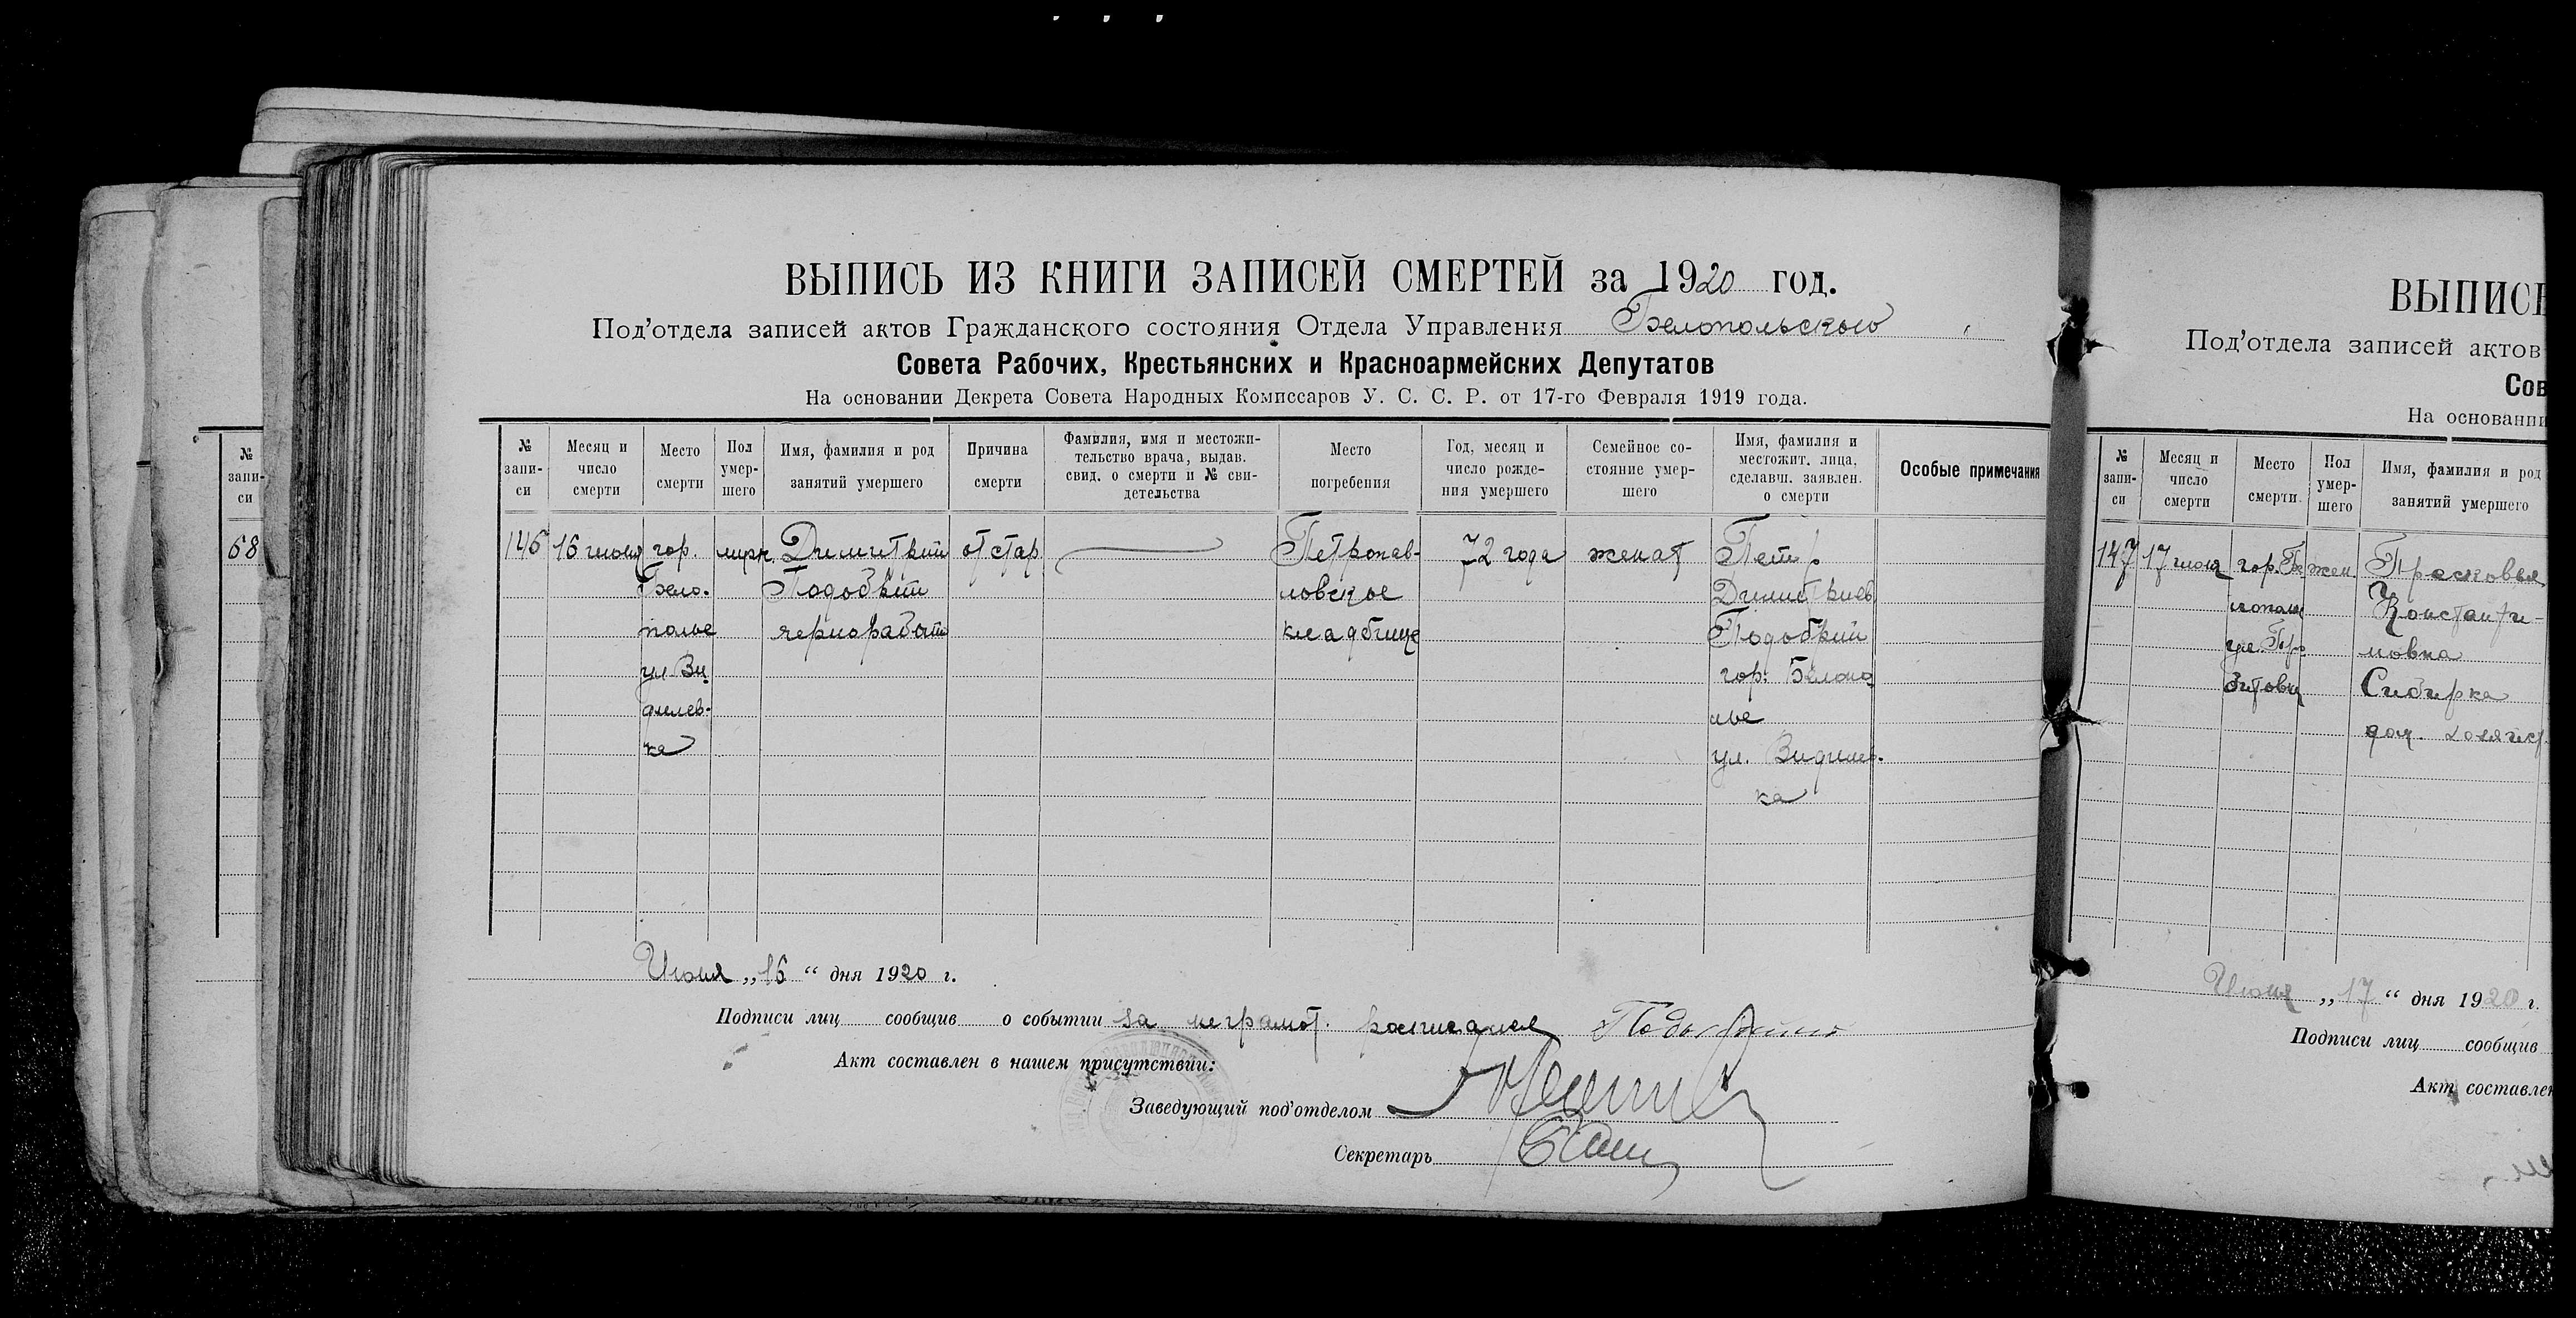 ВЫПИСЬ ИЗ КНИГИ ЗАПИСЕЙ СМЕРТЕЙ за 1920 год.
Под'отдела записей актов Гражданского состояния Отдела Управления Белопольского
Совета Рабочих, Крестьянских и Красноармейских Депутатов
На основании Декрета Совета Народных Комиссаров У. С. С. Р. от 17-го Февраля 1919 года.
№ запи-
си
Месяц и
число
смерти
Место
смерти
Пол
умер-
шего
Имя, фамилия и род
занятий умершего
Причина
смерти
Фамилия, имя и местожи-
тельство врача, выдав.
свид. о смерти и № сви-
детельства
Место
погребения
Год, месяц и
число рожде-
ния умершего
Семейное со-
стояние умер-
шего
Имя, фамилия и
местожит. лица,
сделавш. заявлен.
о смерти
Особые примечания
146
16 июня
гор.
Бело-
полье
ул Ви
дилев-
ка
Димитрий
Подобний
чернорабочий
от стар
Петропав-
ловское
кладбище
72 года
женат
Петр
Димитриев
Подобний
гор. Белопо
лье
ул. Видилев-
ка
Июня „16“ дня 1920 г.
Подписи лиц сообщив о событии за неграмот. расписался
Акт составлен в нашем присутствии:
Заведующий под'отделом
Секретарь
№
запи-
си
68
ВЫПИС
Под'отдела записей актов
Сов
На основании
№
запи-
си
Месяц и
число
смерти
Место
смерти
Пол
умер-
шего
Имя, фамилия и род
занятий умершего
147
17 июня
гор. Бе
жен
Прасковья
Константи-
новна
Сибирка
Июня „17“ дня 1920 г.
Подписи лиц сообщив
Акт составлен